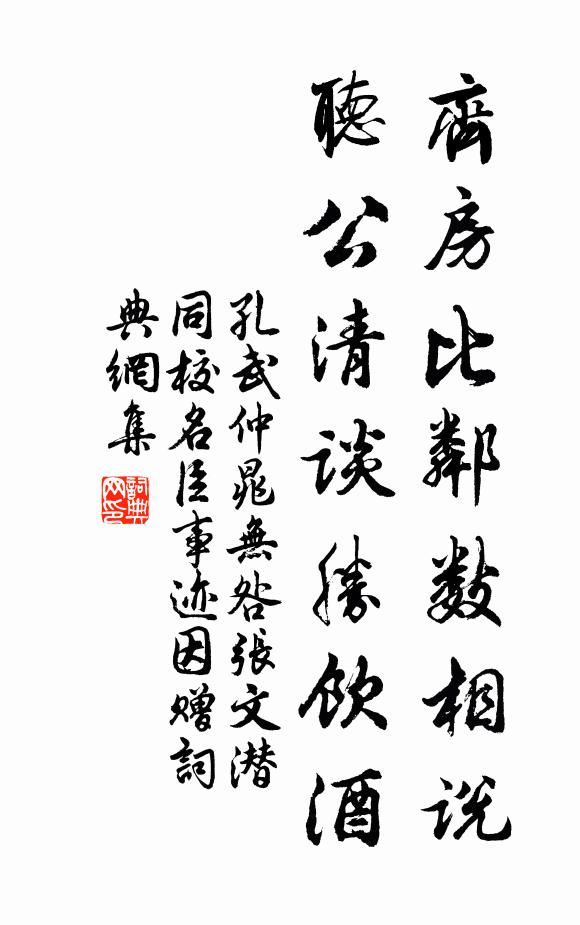 齋房比鄰数相説
聽公清談勝飲酒
孔武仲晁無咎張文潜
同校名臣事迹因贈詞
典網集
詞典
网印